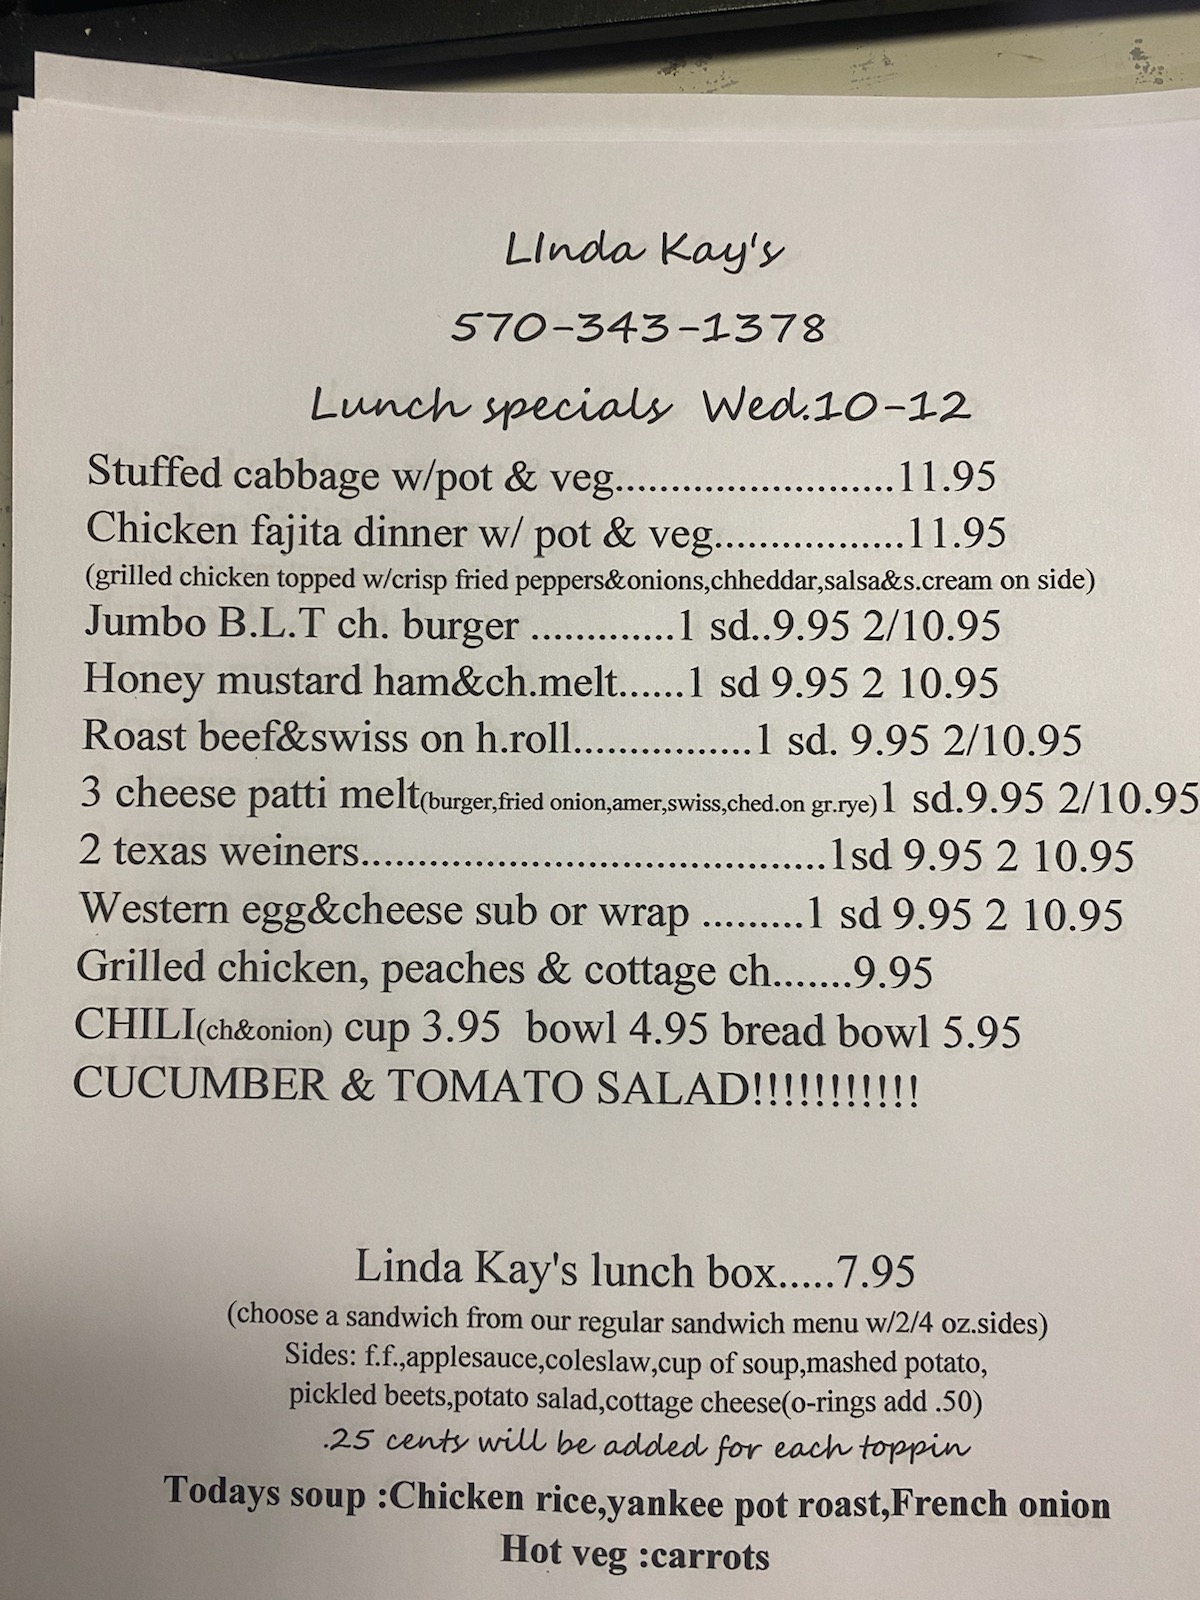 LInda Kay's
570-343-1378
Lunch specials Wed.10-12
Stuffed cabbage w/pot & veg.........................11.95
Chicken fajita dinner w/ pot & veg.................11.95
(grilled chicken topped w/crisp fried peppers&onions,chheddar,salsa&s.cream on side)
Jumbo B.L.T ch. burger .............1 sd..9.95 2/10.95
Honey mustard ham&ch.melt......1 sd 9.95 2 10.95
Roast beef&swiss on h.roll................1 sd. 9.95 2/10.95
3 cheese patti melt(burger,fried onion,amer,swiss,ched.on gr.rye)1 sd.9.95 2/10.95
2 texas weiners..........................................1sd 9.95 2 10.95
Western egg&cheese sub or wrap .........1 sd 9.95 2 10.95
Grilled chicken, peaches & cottage ch.......9.95
CHILI(ch&onion) cup 3.95 bowl 4.95 bread bowl 5.95
CUCUMBER & TOMATO SALAD!!!!!!!!!!!
Linda Kay's lunch box.....7.95
(choose a sandwich from our regular sandwich menu w/2/4 oz.sides)
Sides: f.f.,applesauce,coleslaw,cup of soup,mashed potato,
pickled beets,potato salad,cottage cheese(o-rings add .50)
.25 cents will be added for each toppin
Todays soup :Chicken rice,yankee pot roast,French onion
Hot veg :carrots